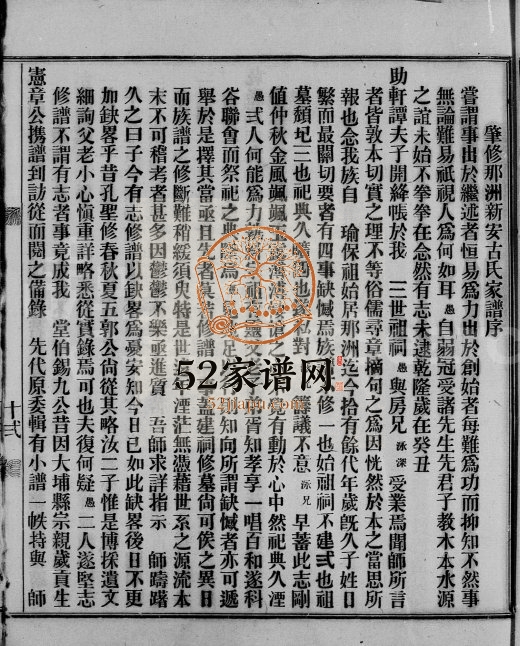 肇修那洲新安古氏家譜序
嘗謂事出於繼述者恒易為力出於創始者每難為功而抑知不然事
無論難易祇視人為何如耳 愚 自弱冠受諸先生先君子教木本水源
之誼未始不拳拳在念然有志未逮乾隆歲在癸丑
助軒譚夫子開絳帳於我 三世祖祠 愚 與房兄 泳深 受業焉聞師所言
者皆敦本切實之理不等俗儒尋章摘句之為因恍然於本之當思所
報也念我族自 瑜保祖始居那洲迄今拾有餘代年歲既久子姓日
繁而最關切要者有四事缺憾焉族 修一也始祖祠不建弍也祖
墓頹圮三也祀典久 也 對 議不意 泳兄 早蓄此志剛
值仲秋金風颯颯玉 有動於心中然祀典久湮
愚 弍人何能為力 祖 靈父 胥知孝享一唱百和遂科
衆聯會而祭祀之典 為 知向所謂缺憾者亦可遞
舉於是擇其當亟且先者莫 修譜 蓋建祠修墓尚可俟之異日
而族譜之修斷難稍緩須臾特是世 年湮茫無憑藉世系之源流本
末不可稽考者甚多因鬱鬱不樂亟進質 吾師求詳指示 師躊躇
久之曰子今有志修譜以缺畧為憂安知今日已如此缺畧後日不更
加缺畧乎昔孔聖修春秋夏五郭公尚從其略汝二子惟是博採遺文
細詢父老小心慎重詳略悉從實錄焉可也夫復何疑 愚 二人遂堅志
修譜不謂有志者事竟成我 堂伯錫九公昔因大埔縣宗親歲貢生
憲章公携譜到訪從而閱之備錄 先代原委輯有小譜一帙持與 師
十弍
52家谱网
52jiapu.com